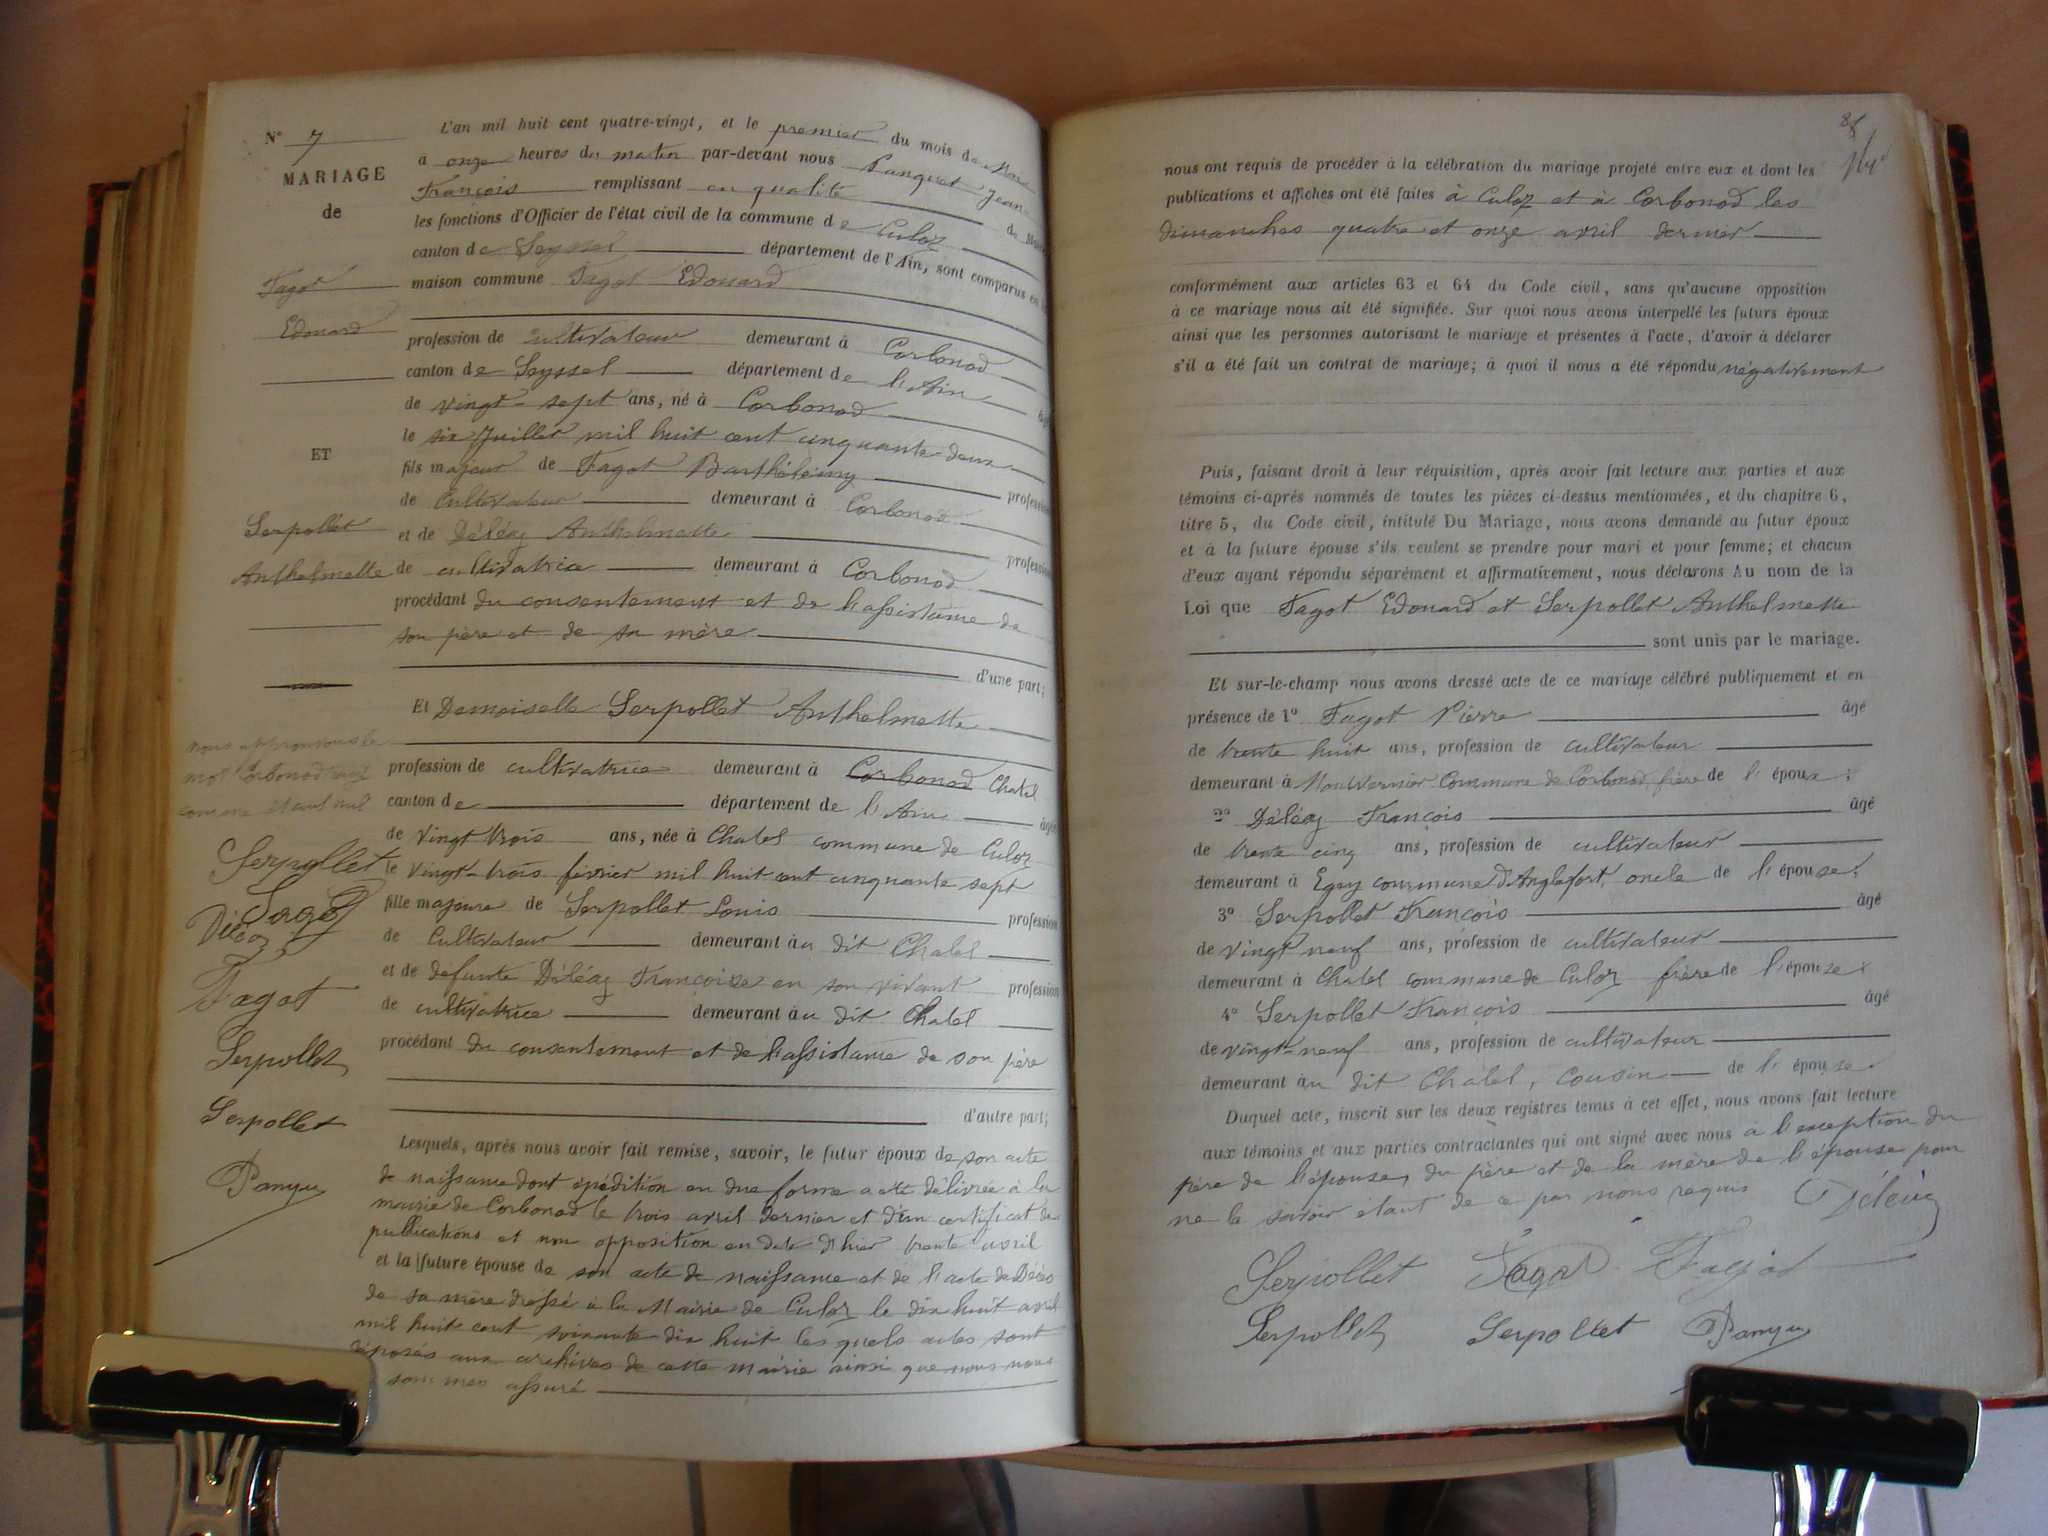 N° 7
MARIAGE
de
Fagot
Edouard
ET
Serpollet
Anthelmette
nous approuvons le
mot Corbonod rayé
comme étant nul
Serpollet
Fagot
Déléaz
Fagot
Serpollet
Serpollet
L'an mil huit cent quatre-vingt, et le premier du mois de Mai
à onze heures du matin par-devant nous Panguet Jean
François remplissant en qualité de
les fonctions d'Officier de l'état civil de la commune de Culoz
canton de Seyssel département de l'Ain, sont comparus en
maison commune Fagot Edouard
profession de cultivateur demeurant à Corbonod
canton de Seyssel département de l'Ain âgé
de vingt-sept ans, né à Corbonod
le six Juillet mil huit cent cinquante-deux
fils majeur de Fagot Barthélémy profession
de cultivateur demeurant à Corbonod
et de Déléaz Anthelmette profession
de cultivatrice demeurant à Corbonod
procédant du consentement et de l'assistance de
son père et de sa mère
d'une part;
Et Demoiselle Serpollet Anthelmette
profession de cultivatrice demeurant à Corbonod Chatel
canton de département de l'Ain âgé
de vingt trois ans, née à Chatel commune de Culoz
le vingt-trois février mil huit cent cinquante sept
fille majeure de Serpollet Louis profession
de cultivateur demeurant au dit Chatel
et de défunte Déléaz Françoise en son vivant profession
de cultivatrice demeurant au dit Chatel
procédant du consentement et de l'assistance de son père
d'autre part;
Lesquels, après nous avoir fait remise, savoir, le futur époux de son acte
de naissance dont expédition en due forme a été délivrée à la
mairie de Corbonod le trois avril dernier et d'un certificat de
publications et non opposition en date d'hier trente avril
et la future épouse de son acte de naissance et de l'acte de Décès
de sa mère dressé à la Mairie de Culoz le dix huit avril
mil huit cent soixante dix huit les quels actes sont
déposés aux archives de cette mairie ainsi que nous nous
sommes assuré
nous ont requis de procéder à la célébration du mariage projeté entre eux et dont les
publications et affiches ont été faites à Culoz et à Corbonod les
dimanches quatre et onze avril dernier
conformément aux articles 63 et 64 du Code civil, sans qu'aucune opposition
à ce mariage nous ait été signifiée. Sur quoi nous avons interpellé les futurs époux
ainsi que les personnes autorisant le mariage et présentes à l'acte, d'avoir à déclarer
s'il a été fait un contrat de mariage; à quoi il nous a été répondu négativement
Puis, faisant droit à leur réquisition, après avoir fait lecture aux parties et aux
témoins ci-après nommés de toutes les pièces ci-dessus mentionnées, et du chapitre 6,
titre 5, du Code civil, intitulé Du Mariage, nous avons demandé au futur époux
et à la future épouse s'ils veulent se prendre pour mari et pour femme; et chacun
d'eux ayant répondu séparément et affirmativement, nous déclarons Au nom de la
Loi que Fagot Edouard et Serpollet Anthelmette
sont unis par le mariage.
Et sur-le-champ nous avons dressé acte de ce mariage célébré publiquement et en
présence de 1° Fagot Pierre âgé
de trente huit ans, profession de cultivateur
demeurant à Commune de Corbonod, frère de l'époux;
2° Déléaz François âgé
de trente cinq ans, profession de cultivateur
demeurant à commune d'Anglefort, oncle de l'épouse;
3° Serpollet François âgé
de vingt neuf ans, profession de cultivateur
demeurant à Chatel commune de Culoz frère de l'épouse
4° Serpollet François âgé
de vingt-neuf ans, profession de cultivateur
demeurant au dit Chatel, cousin de l'épouse.
Duquel acte, inscrit sur les deux registres tenus à cet effet, nous avons fait lecture
aux témoins et aux parties contractantes qui ont signé avec nous à l'exception du
père de l'épouse, du père et de la mère de l'épouse pour
ne le savoir étant de ce par nous requis Déléaz
Serpollet Fagot Fagot
Serpollet Serpollet